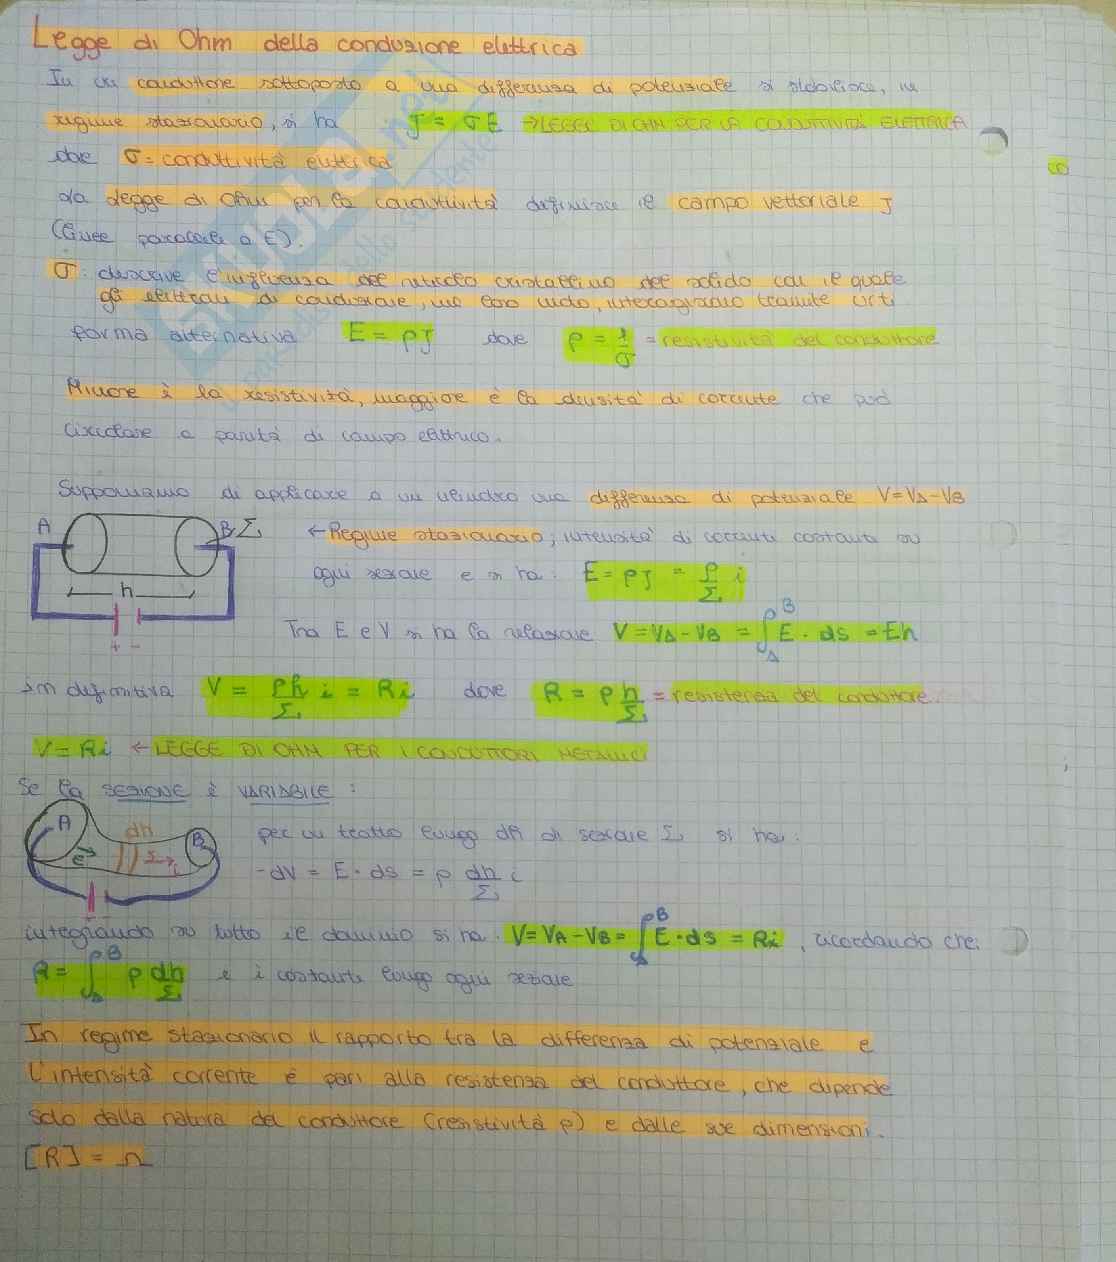 Legge di Ohm della conduzione elettrica
In un conduttore sottoposto a una differenza di potenziale si stabilisce, in
regime stazionario, si ha J = σE → LEGGE DI OHM PER LA CONDUTTIVITÀ ELETTRICA
dove σ = conduttività elettrica
La legge di Ohm per la conduttività definisce il campo vettoriale J
(linee parallele a E).
σ: descrive l'influenza del reticolo cristallino del solido con il quale
gli elettroni di conduzione, nel loro moto, interagiscono tramite urti
forma alternativa E = ρJ dove ρ = 1/σ = resistività del conduttore
Minore è la resistività, maggiore è la densità di corrente che può
circolare a parità di campo elettrico.
Supponiamo di applicare a un cilindro una differenza di potenziale V = VA - VB
A B Σ ← Regime stazionario, intensità di corrente costante su
ogni sezione e si ha: E = ρJ = ρ/Σ i
h
Tra E e V si ha la relazione V = VA - VB = ∫_A^B E · ds = Eh
+ -
In definitiva V = ρh/Σ i = Ri dove R = ρ h/Σ = resistenza del conduttore.
V = Ri ← LEGGE DI OHM PER I CONDUTTORI METALLICI
Se la SEZIONE è VARIABILE:
A dh B per un tratto lungo dh di sezione Σ si ha:
E Σ i
-dV = E · ds = ρ dh/Σ i
integrando su tutto il dominio si ha: V = VA - VB = ∫_A^B E · ds = Ri, ricordando che:
R = ∫_A^B ρ dh/Σ e i costante lungo ogni sezione
In regime stazionario il rapporto tra la differenza di potenziale e
l'intensità corrente è pari alla resistenza del conduttore, che dipende
solo dalla natura del conduttore (resistività ρ) e dalle sue dimensioni.
[R] = Ω